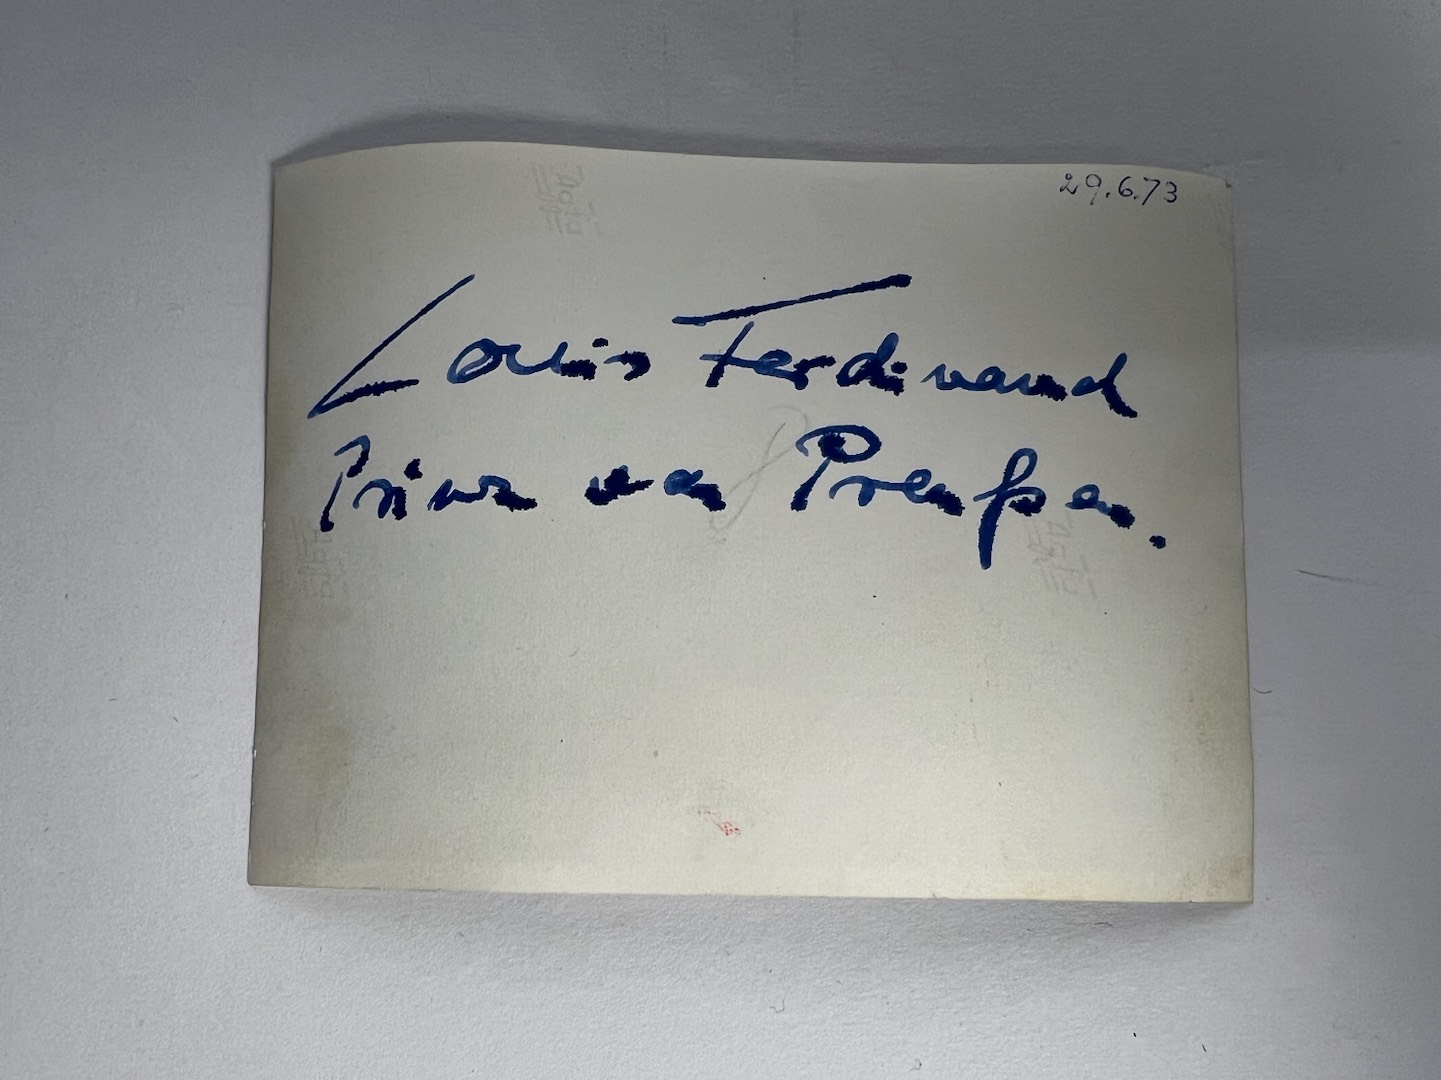 29.6.73
Louis Ferdinand
Prinz von Preußen.